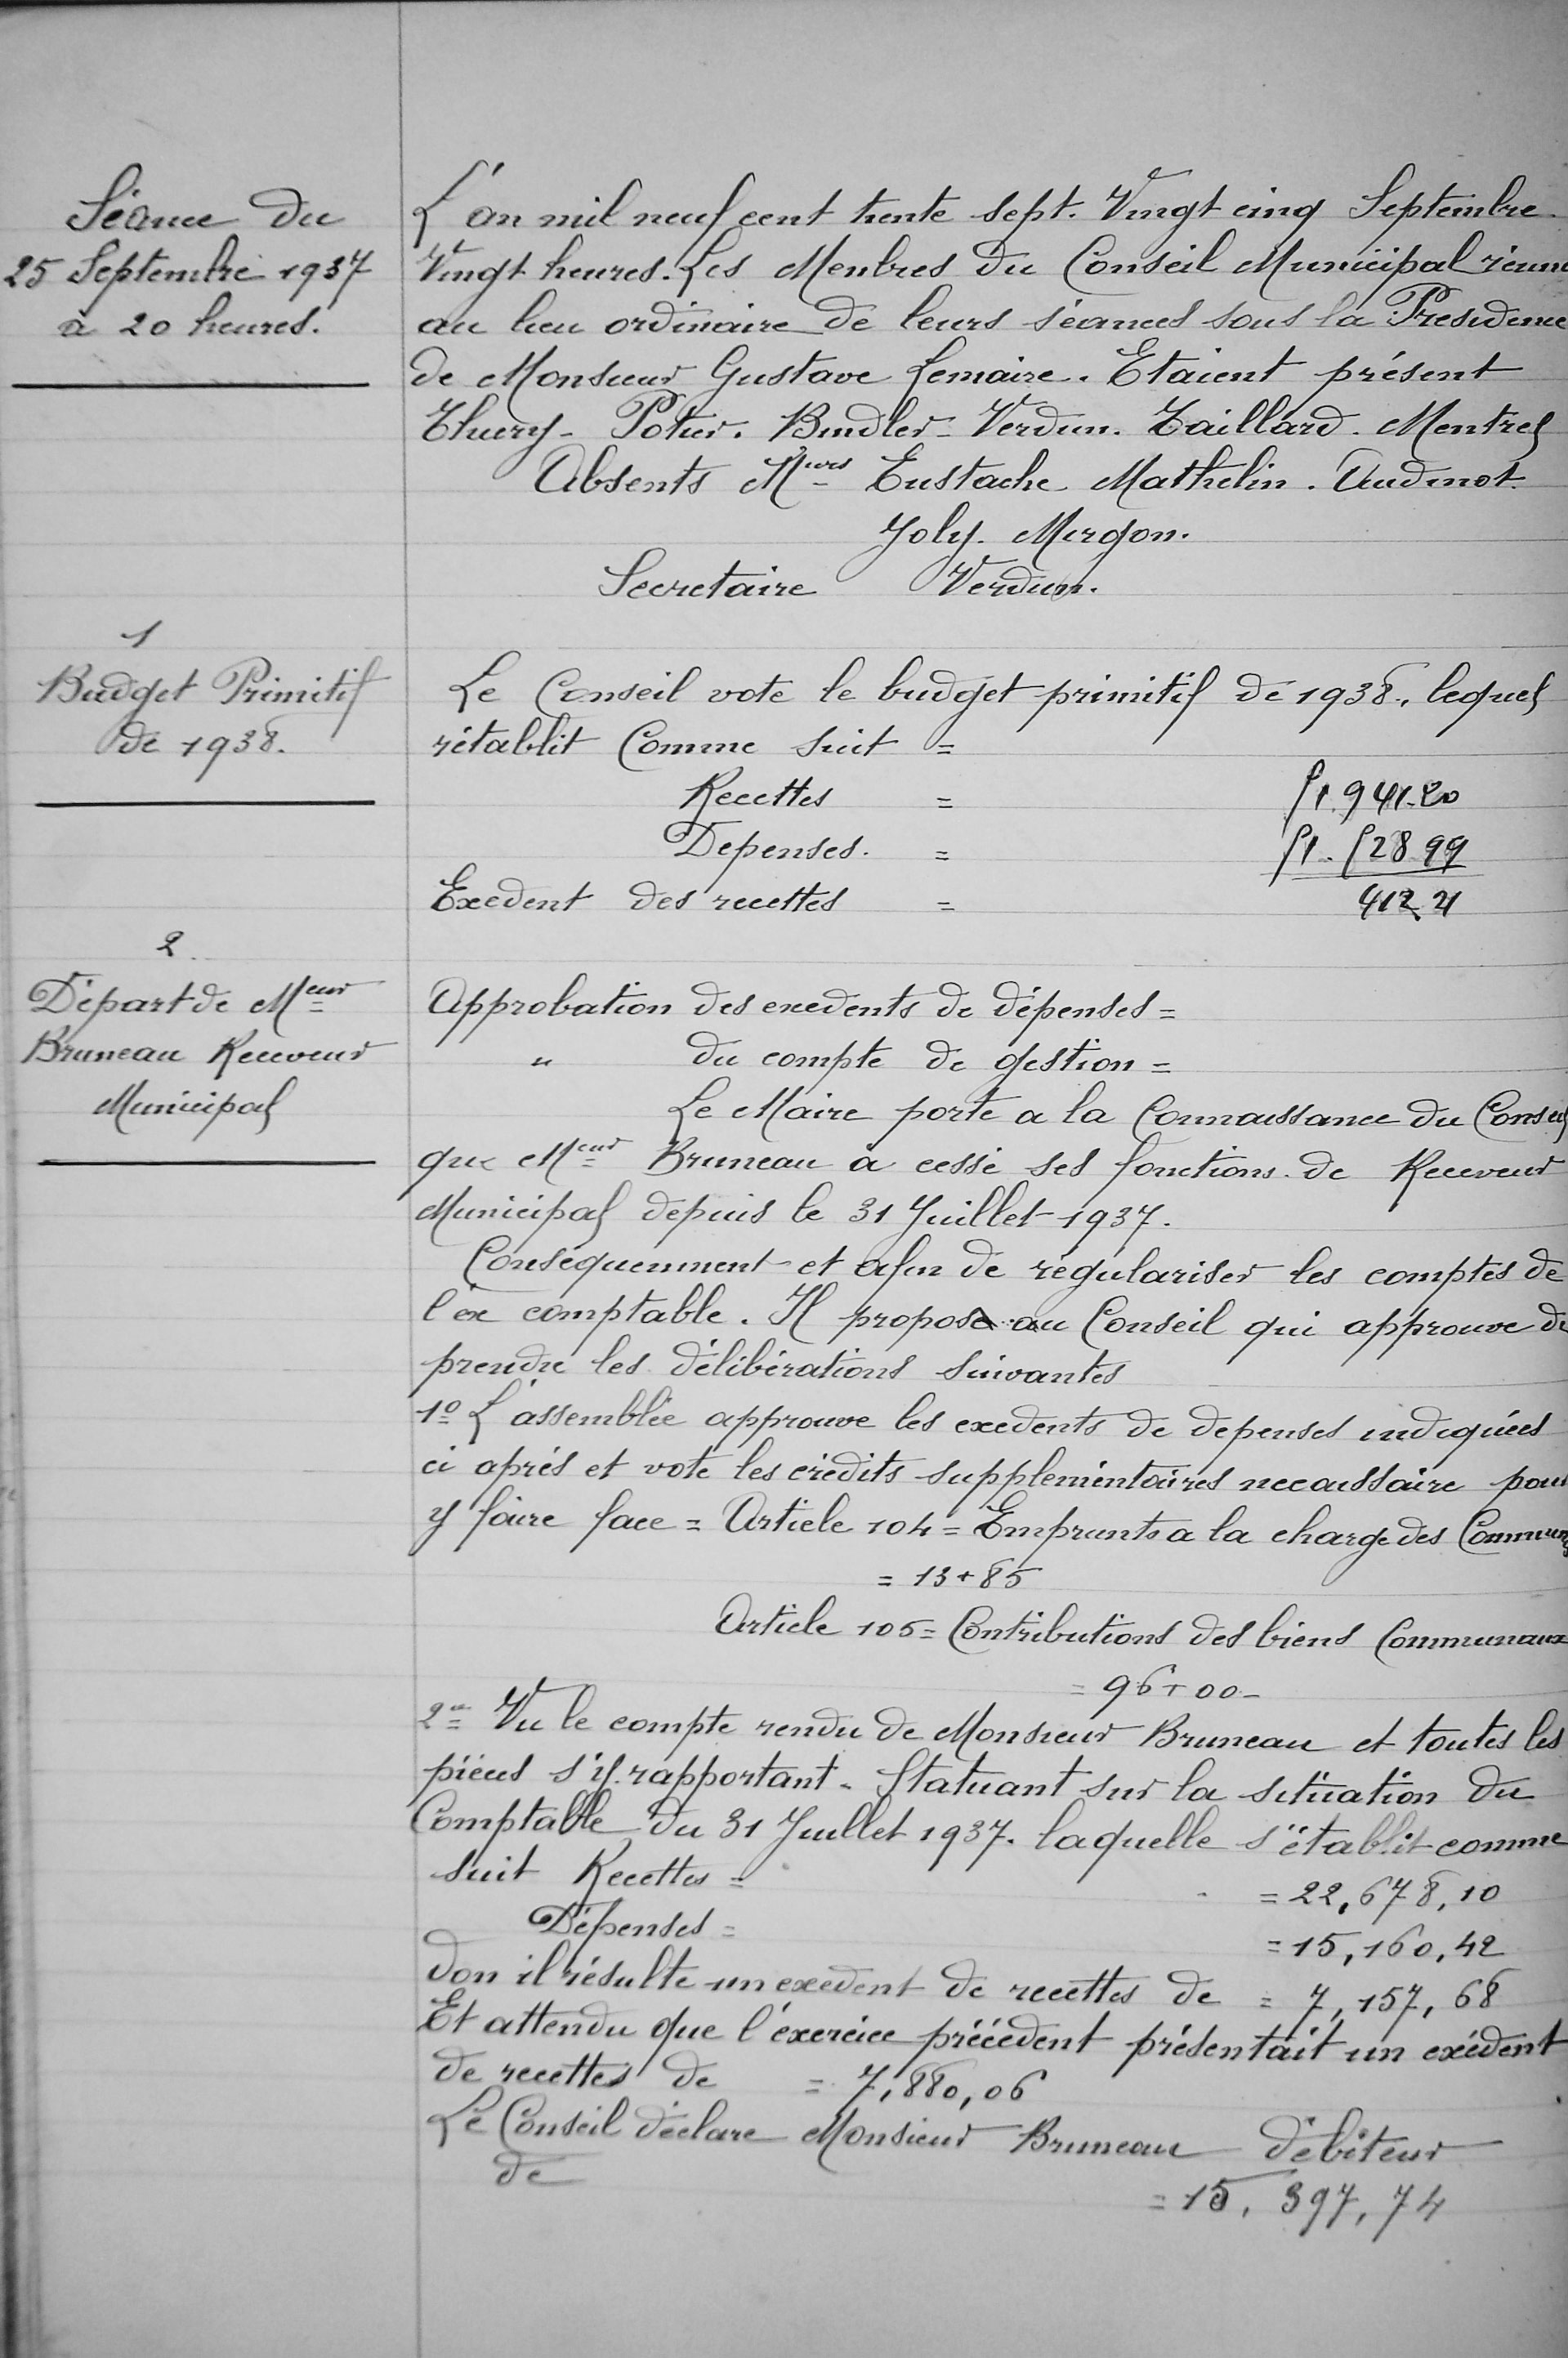 Séance du
25 Septembre 1937
à 20 heures.
L'an mil neuf cent trente sept. Vingt cinq Septembre
Vingt heures. Les Menbres du Conseil Municipal réuni
au lieu ordinaire de leurs séances sous la Presidence
de Monsieur Gustave Lemaire. Etaient présent
Thiery - Potier. Bindler - Verdun. Taillard. Mentrel
Absents Mieurs Eustache Mathelin. Audinot.
Joly. Mergon.
Secretaire Verdun.
1
Budget Primitif
de 1938.
Le Conseil vote le budget primitif de 1938, lequel
rétablit Comme suit =
Recettes = 51.941.20
Depenses. = 51.528 99
Exedent des recettes = 412 21
2.
Départ de Meur
Bruneau Receveur
Municipal
Approbation des exedents de dépenses =
" du compte de gestion =
Le Maire porte a la Connaissance du Conseil
que Meur Bruneau à cessé ses fonctions de Receveur
Municipal depuis le 31 Juillet 1937.
Conséquemment et afin de régulariser les comptes de
l'ex comptable. Il propose au Conseil qui approuve de
prendre les délibérations suivantes
1º L'assemblée approuve les exedents de depenses indiquées
ci aprés et vote les crédits supplémentaires necaissaire pour
y faire face = Article 104 = Emprunts a la charge des Communes
= 13+85
Article 105 = Contributions des biens Communaux
= 96+00 -
2º Vu le compte rendu de Monsieur Bruneau et toutes les
piéces s'y rapportant. Statuant sur la situation du
Comptable du 31 Juillet 1937. laquelle s'établit comme
suit Recettes = = 22,678,10
Dépenses = = 15,160,42
Don il résulte un exedent de recettes de = 7,157,68
Et attendu que l'éxercice précédent présentait un exédent
de recettes de = 7,880,06
Le Conseil déclare Monsieur Bruneau débiteur
de = 15,397,74